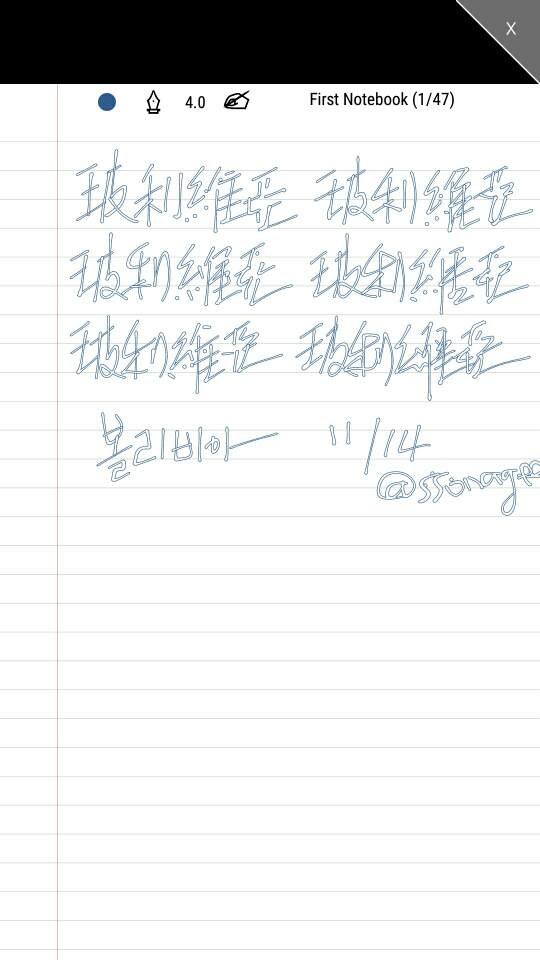 X
4.0 First Notebook (1/47)
玻利維亞 玻利維亞
玻利維亞 玻利維亞
玻利維亞 玻利維亞
볼리비아 11/14